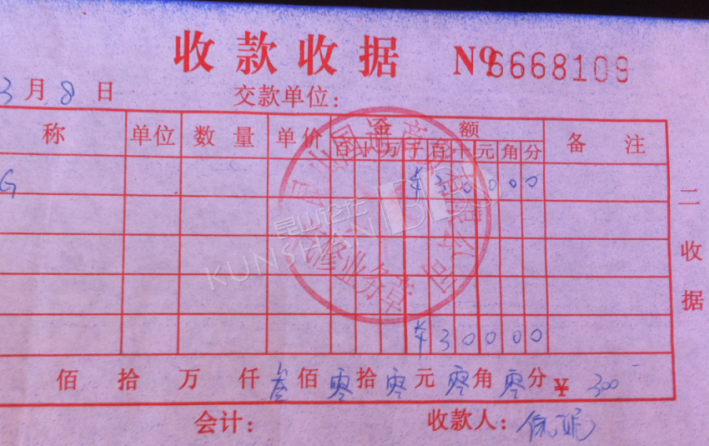 收款收据 № 6668109
3月8日 交款单位:
称 单位 数量 单价 金额 备注
百十万千百十元角分
G ¥30000
¥30000
佰拾万仟叁佰零拾零元零角零分 ¥300
会计: 收款人:
二收据
昆山论坛
KUNSHAN